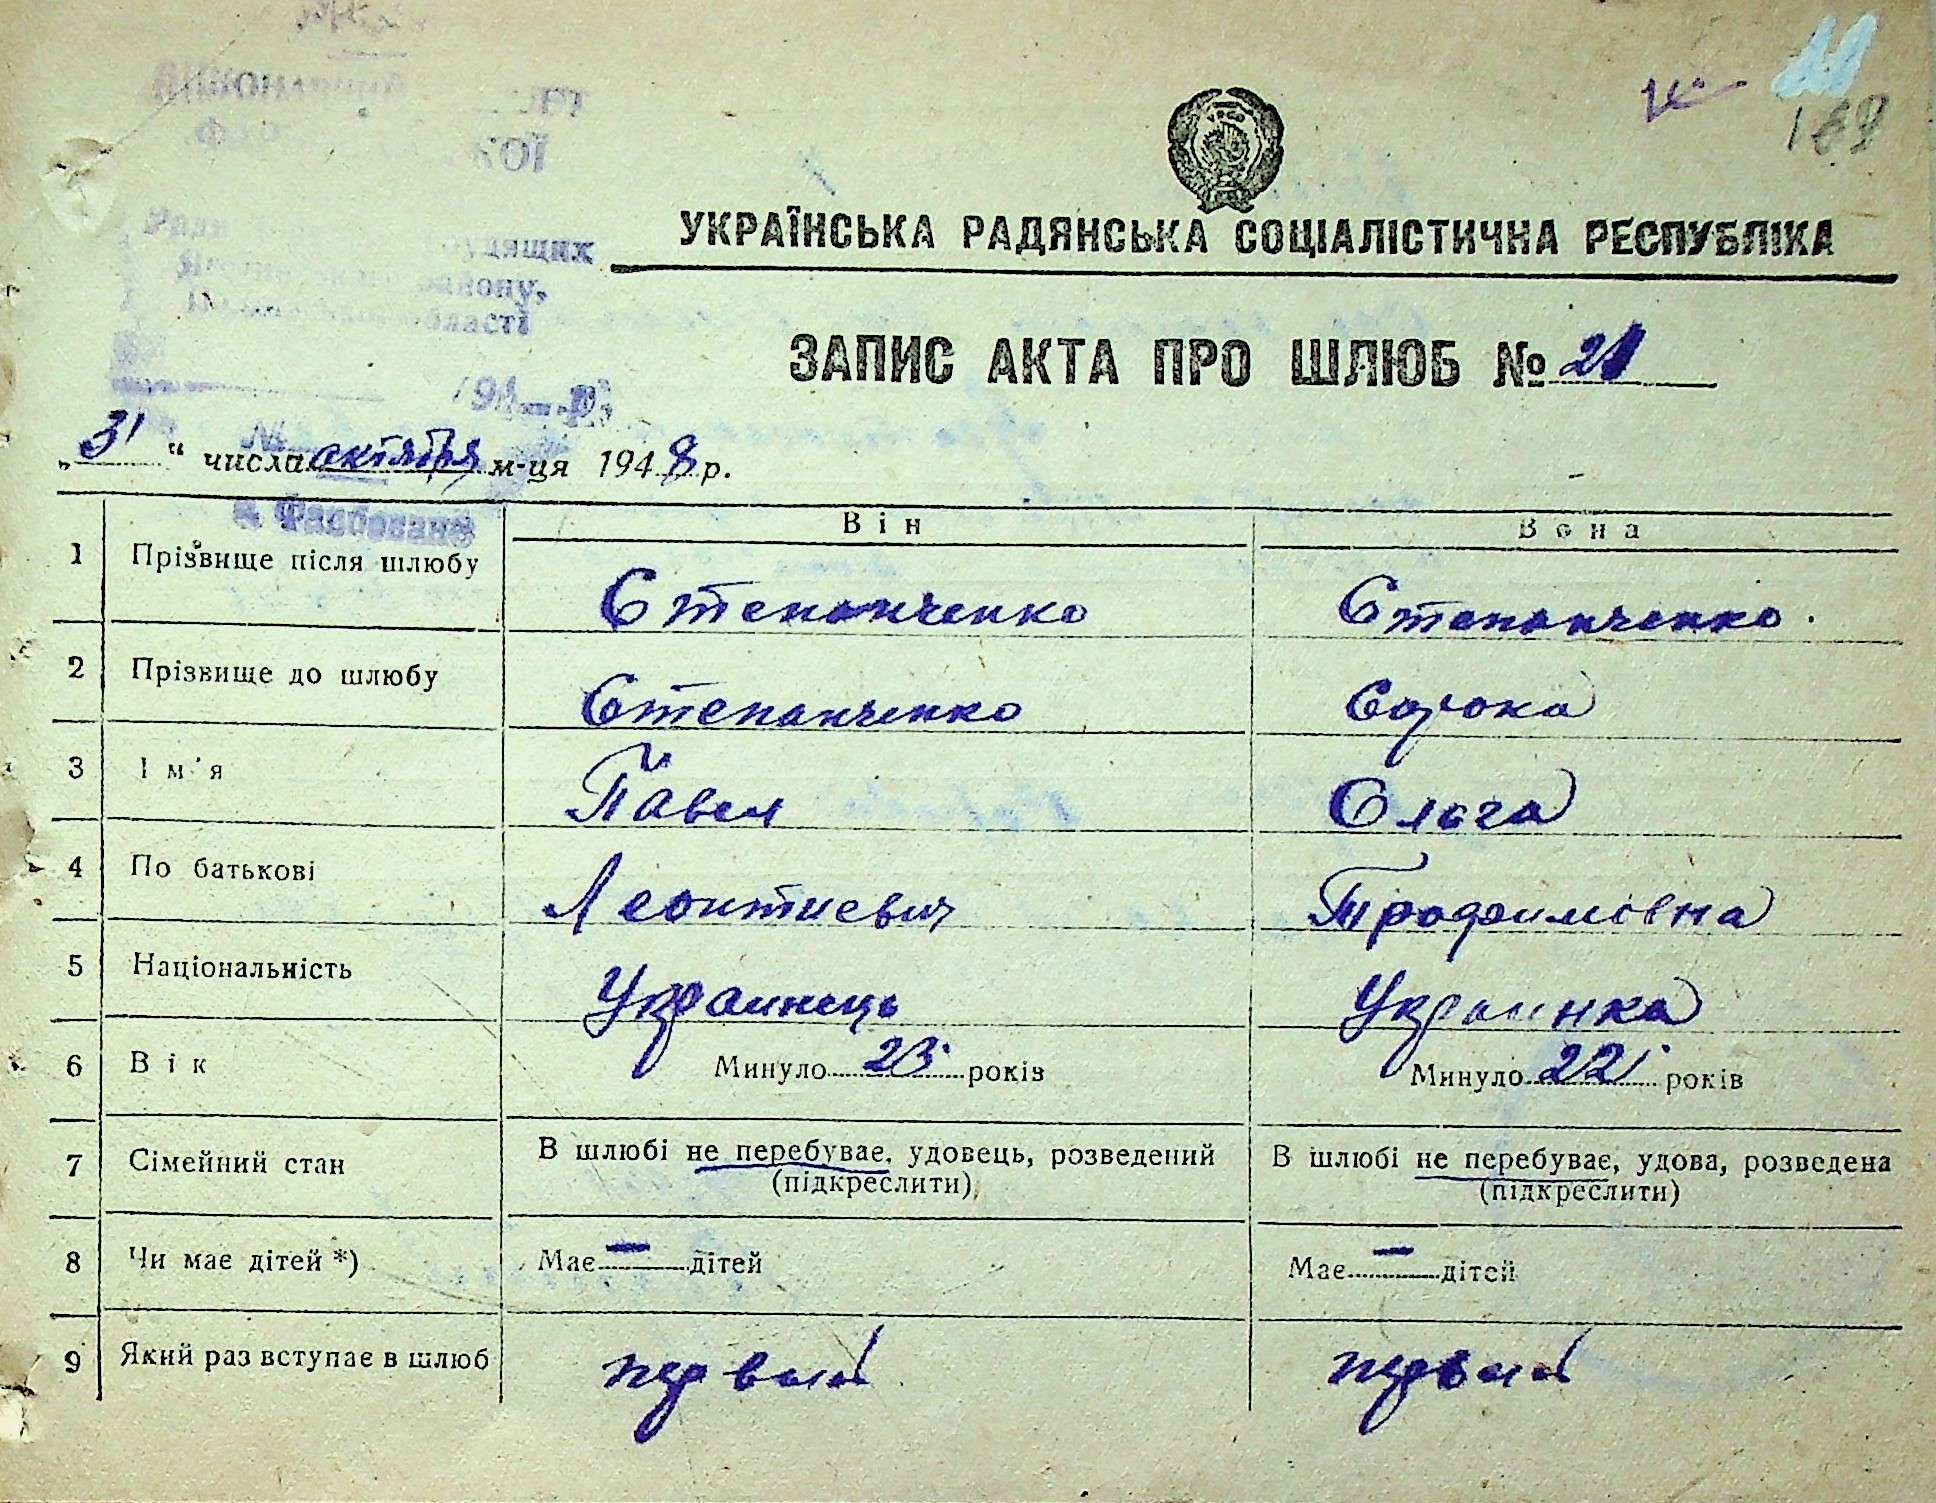 КОЇ
удящих
району,
області
УКРАЇНСЬКА РАДЯНСЬКА СОЦІАЛІСТИЧНА РЕСПУБЛІКА
ЗАПИС АКТА ПРО ШЛЮБ №
" числа октября м-ця 1948 р.
Він Вона
1 Прізвище після шлюбу Степанченко Степанченко.
2 Прізвище до шлюбу Степанченко Сорока
3 Ім'я Павел Ольга
4 По батькові Леонтиевич Трофимовна
5 Національність Украинець Украинка
6 Вік Минуло 23 років Минуло 22 років
7 Сімейний стан В шлюбі не перебуває, удовець, розведений В шлюбі не перебуває, удова, розведена
(підкреслити) (підкреслити)
8 Чи має дітей *) Має — дітей Має — дітей
9 Який раз вступає в шлюб первый первый